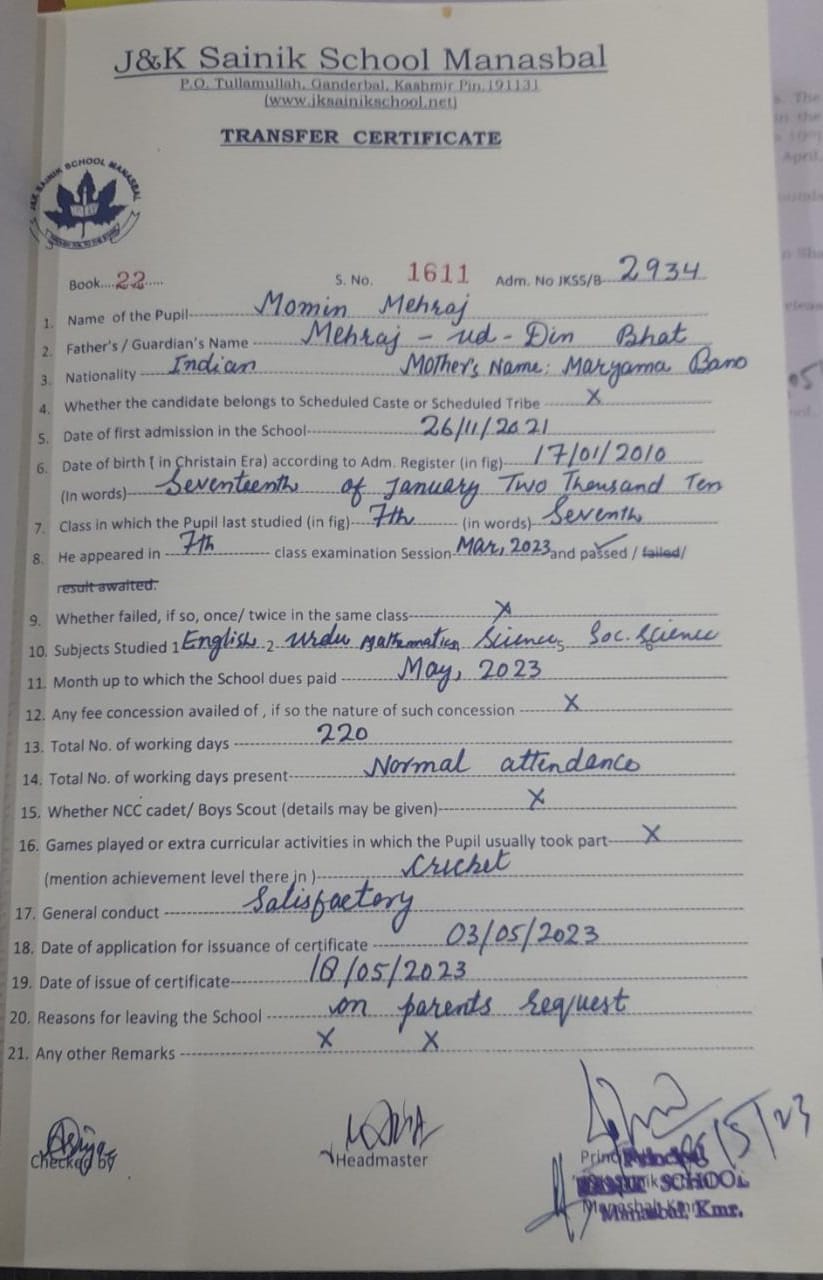 J&K Sainik School Manasbal
P.O. Tullamullah, Ganderbal, Kashmir Pin.191131
(www.jksainikschool.net)
TRANSFER CERTIFICATE
J&K SAINIK SCHOOL MANASBAL
Book....22..... S. No. 1611 Adm. No JKSS/B 2934
1. Name of the Pupil Momin Mehraj
2. Father's / Guardian's Name Mehraj - ud - Din Bhat
3. Nationality Indian Mother's Name: Maryama Bano
4. Whether the candidate belongs to Scheduled Caste or Scheduled Tribe X
5. Date of first admission in the School 26/11/2021
6. Date of birth ( in Christain Era) according to Adm. Register (in fig) 17/01/2010
(In words) Seventeenth of January Two Thousand Ten
7. Class in which the Pupil last studied (in fig) 7th (in words) Seventh
8. He appeared in 7th class examination Session Mar, 2023 and passed / failed/
result awaited.
9. Whether failed, if so, once/ twice in the same class X
10. Subjects Studied 1 English 2 Urdu Mathematics Science 5 Soc. Science
11. Month up to which the School dues paid May, 2023
12. Any fee concession availed of , if so the nature of such concession X
13. Total No. of working days 220
14. Total No. of working days present Normal attendance
15. Whether NCC cadet/ Boys Scout (details may be given) X
16. Games played or extra curricular activities in which the Pupil usually took part X
(mention achievement level there in ) Cricket
17. General conduct Satisfactory
18. Date of application for issuance of certificate 03/05/2023
19. Date of issue of certificate /05/2023
20. Reasons for leaving the School on parents request
21. Any other Remarks X X
Checked by Headmaster Principal
/5/23
SCHOOL
Manasbal, Kmr.